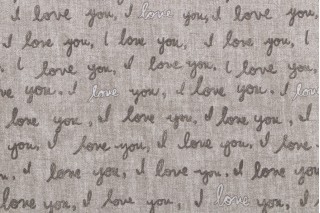 I love you, I love you, I love you, I
I love you, I love you, I love you, I
love you, I love you, I love you, I
love you. I love you, I love you. I love
love you, I love you, I love you, I
I love you, I love you, I love you. I
you, I love you, I love you. I love
love you, I love you, I love you, I